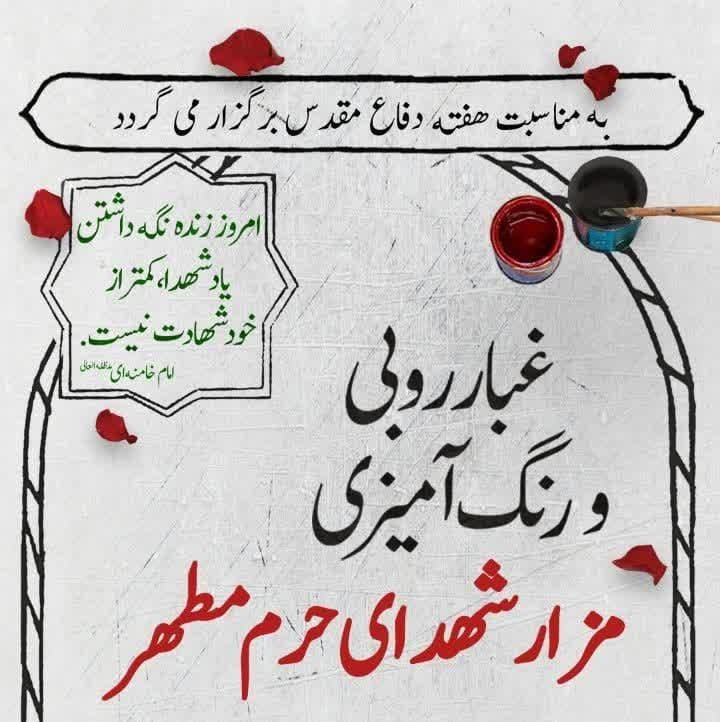 به مناسبت هفته دفاع مقدس برگزار می گردد
امروز زنده نگه داشتن
یاد شهدا، کمتر از
خود شهادت نیست.
امام خامنه‌ای مدظله‌العالی
غبارروبی
و رنگ آمیزی
مزار شهدای حرم مطهر